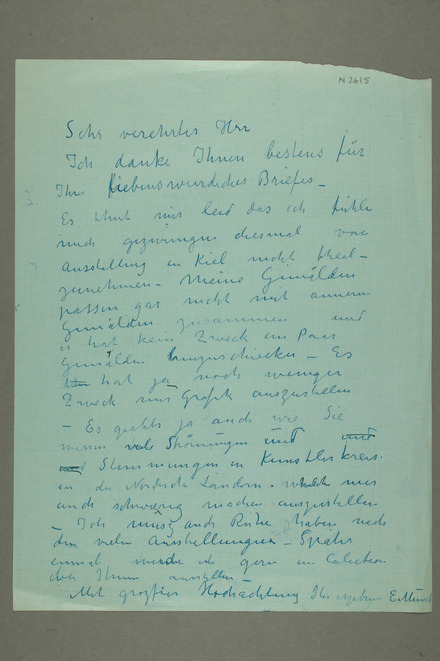 N 2615
Sehr verehrter Herr
Ich danke Ihnen bestens für
Ihre liebenswurdiches Briefes –
Es thut mir leid das ich fühle
mich gezwungen diesmal von
Ausstellung in Kiel nicht theil–
zunehmen – Meine Gemälden
passen gar nicht mit anderen
Gemälden zusammen und
es hat kein Zweck ein Paar
Gemälden – Es
hat ja noch weniger
Zweck nur Grafik auszustellen
– Es giebts ja auch wie Sie
wissen viele Strömungen und
Stemmungen in Kunstlerkreis.
in die Nordische Ländern – mir
auch schwierig machen auszustellen
– Ich musz auch Ruhe haben nach
den vielen Ausstellungen – Später
einmal werde ich gern ein Colection
bei Ihnen ausstellen –
Mit groszter Hochachtung Ihr ergebene E. Munch